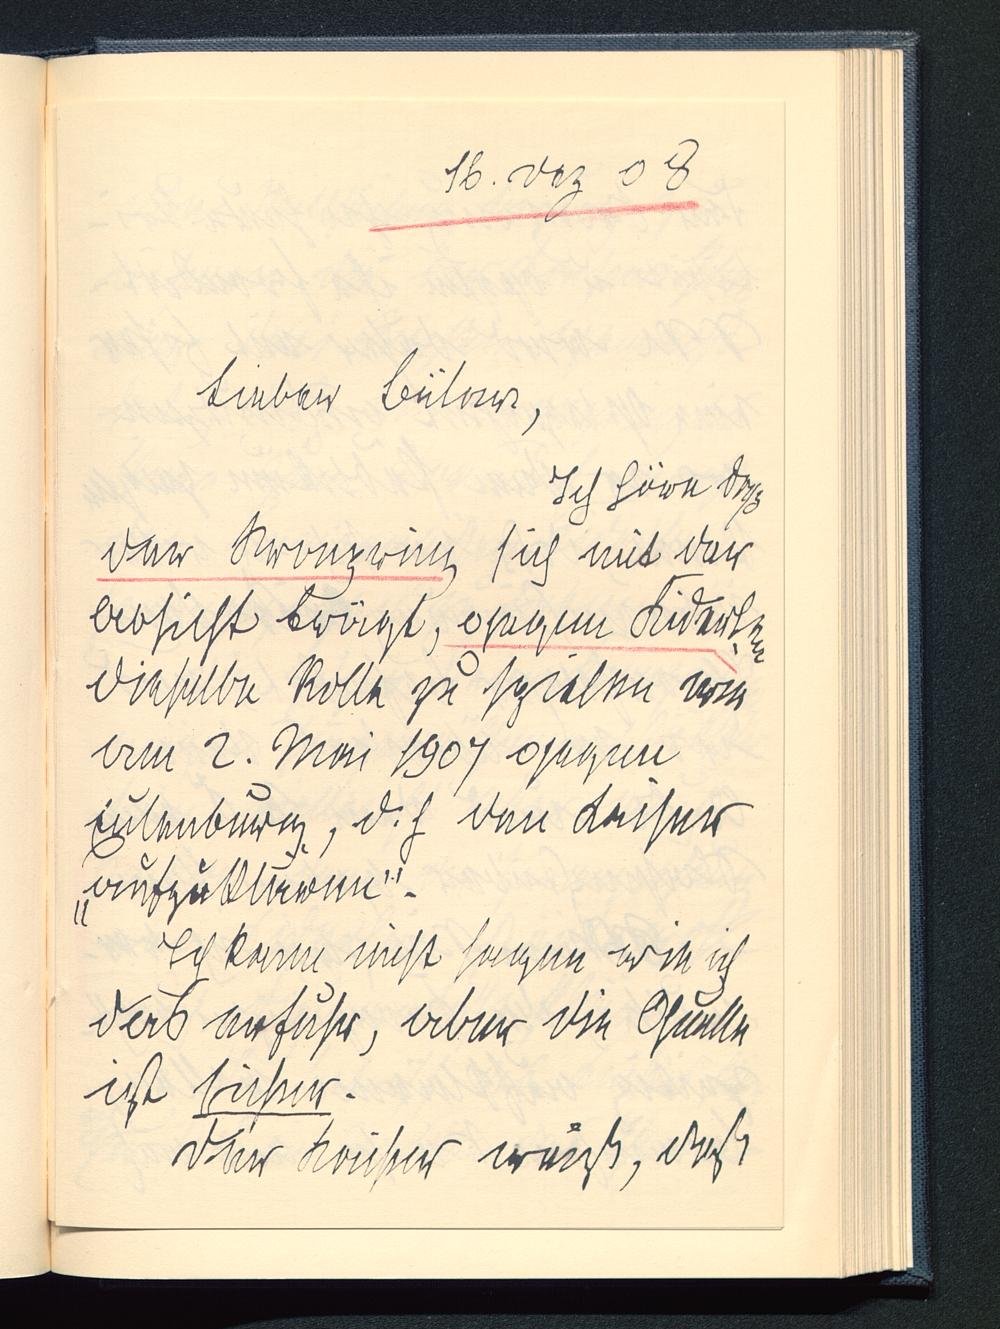 16. Dez 08
Lieber Bülow,
Ich höre daß
der Kronprinz sich mit der
Absicht trägt, gegen Kiderlen
dieselbe Rolle zu spielen wie
am 2. Mai 1907 gegen
Eulenburg, d.h den Kaiser
„aufzuklären".
Ich kann nicht sagen wie ich
das erfuhr, aber die Quelle
ist sicher.
Der Kaiser weiß, daß